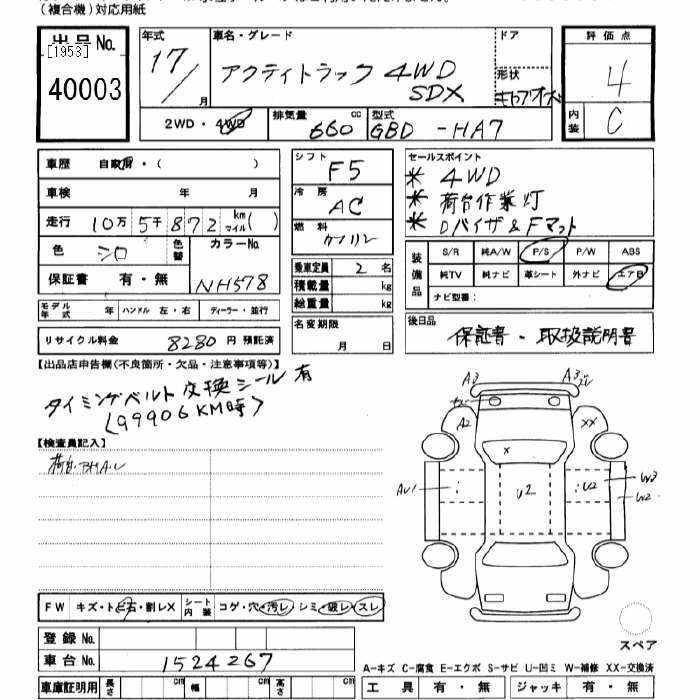 (複合機)対応用紙
出品No.
[1953]
40003
年式 17 / 月
車名・グレード アクティトラック 4WD SDX
ドア
形状
評価点 4
内装 C
2WD・4WD
排気量 660 cc
型式 GBD-HA7
車歴 自家用・( )
車検 年 月
走行 10万5千872 km マイル( )
色 シロ 色替
カラーNo. NH578
保証書 有・無
モデル年式 年 ハンドル 左・右 ディーラー・並行
リサイクル料金 8280 円 預託済
シフト F5
冷房 AC
燃料 ガソリン
乗車定員 2 名
積載量 kg
総重量 kg
名変期限 月 日
セールスポイント
* 4WD
* 荷台作業灯
* Dバイザ & Fマット
装備品
S/R 純A/W P/S P/W ABS
純TV 純ナビ 革シート 外ナビ エアB
ナビ型番:
後日品 保証書・取扱説明書
【出品店申告欄(不良箇所・欠品・注意事項等)】
タイミングベルト交換シール有
(99906KM時)
【検査員記入】
A3 A3
A2 XX
X
AU1 U2 U2 W3
W2
FW キズ・トビ石・割レX シート内装 コゲ・穴・汚レ シミ・破レ・スレ
登録No.
車台No. 1524267
車庫証明用 長さ cm 幅 cm 高さ cm
スペア
A-キズ C-腐食 E-エクボ S-サビ U-凹ミ W-補修 XX-交換済
工具 有・無 ジャッキ 有・無